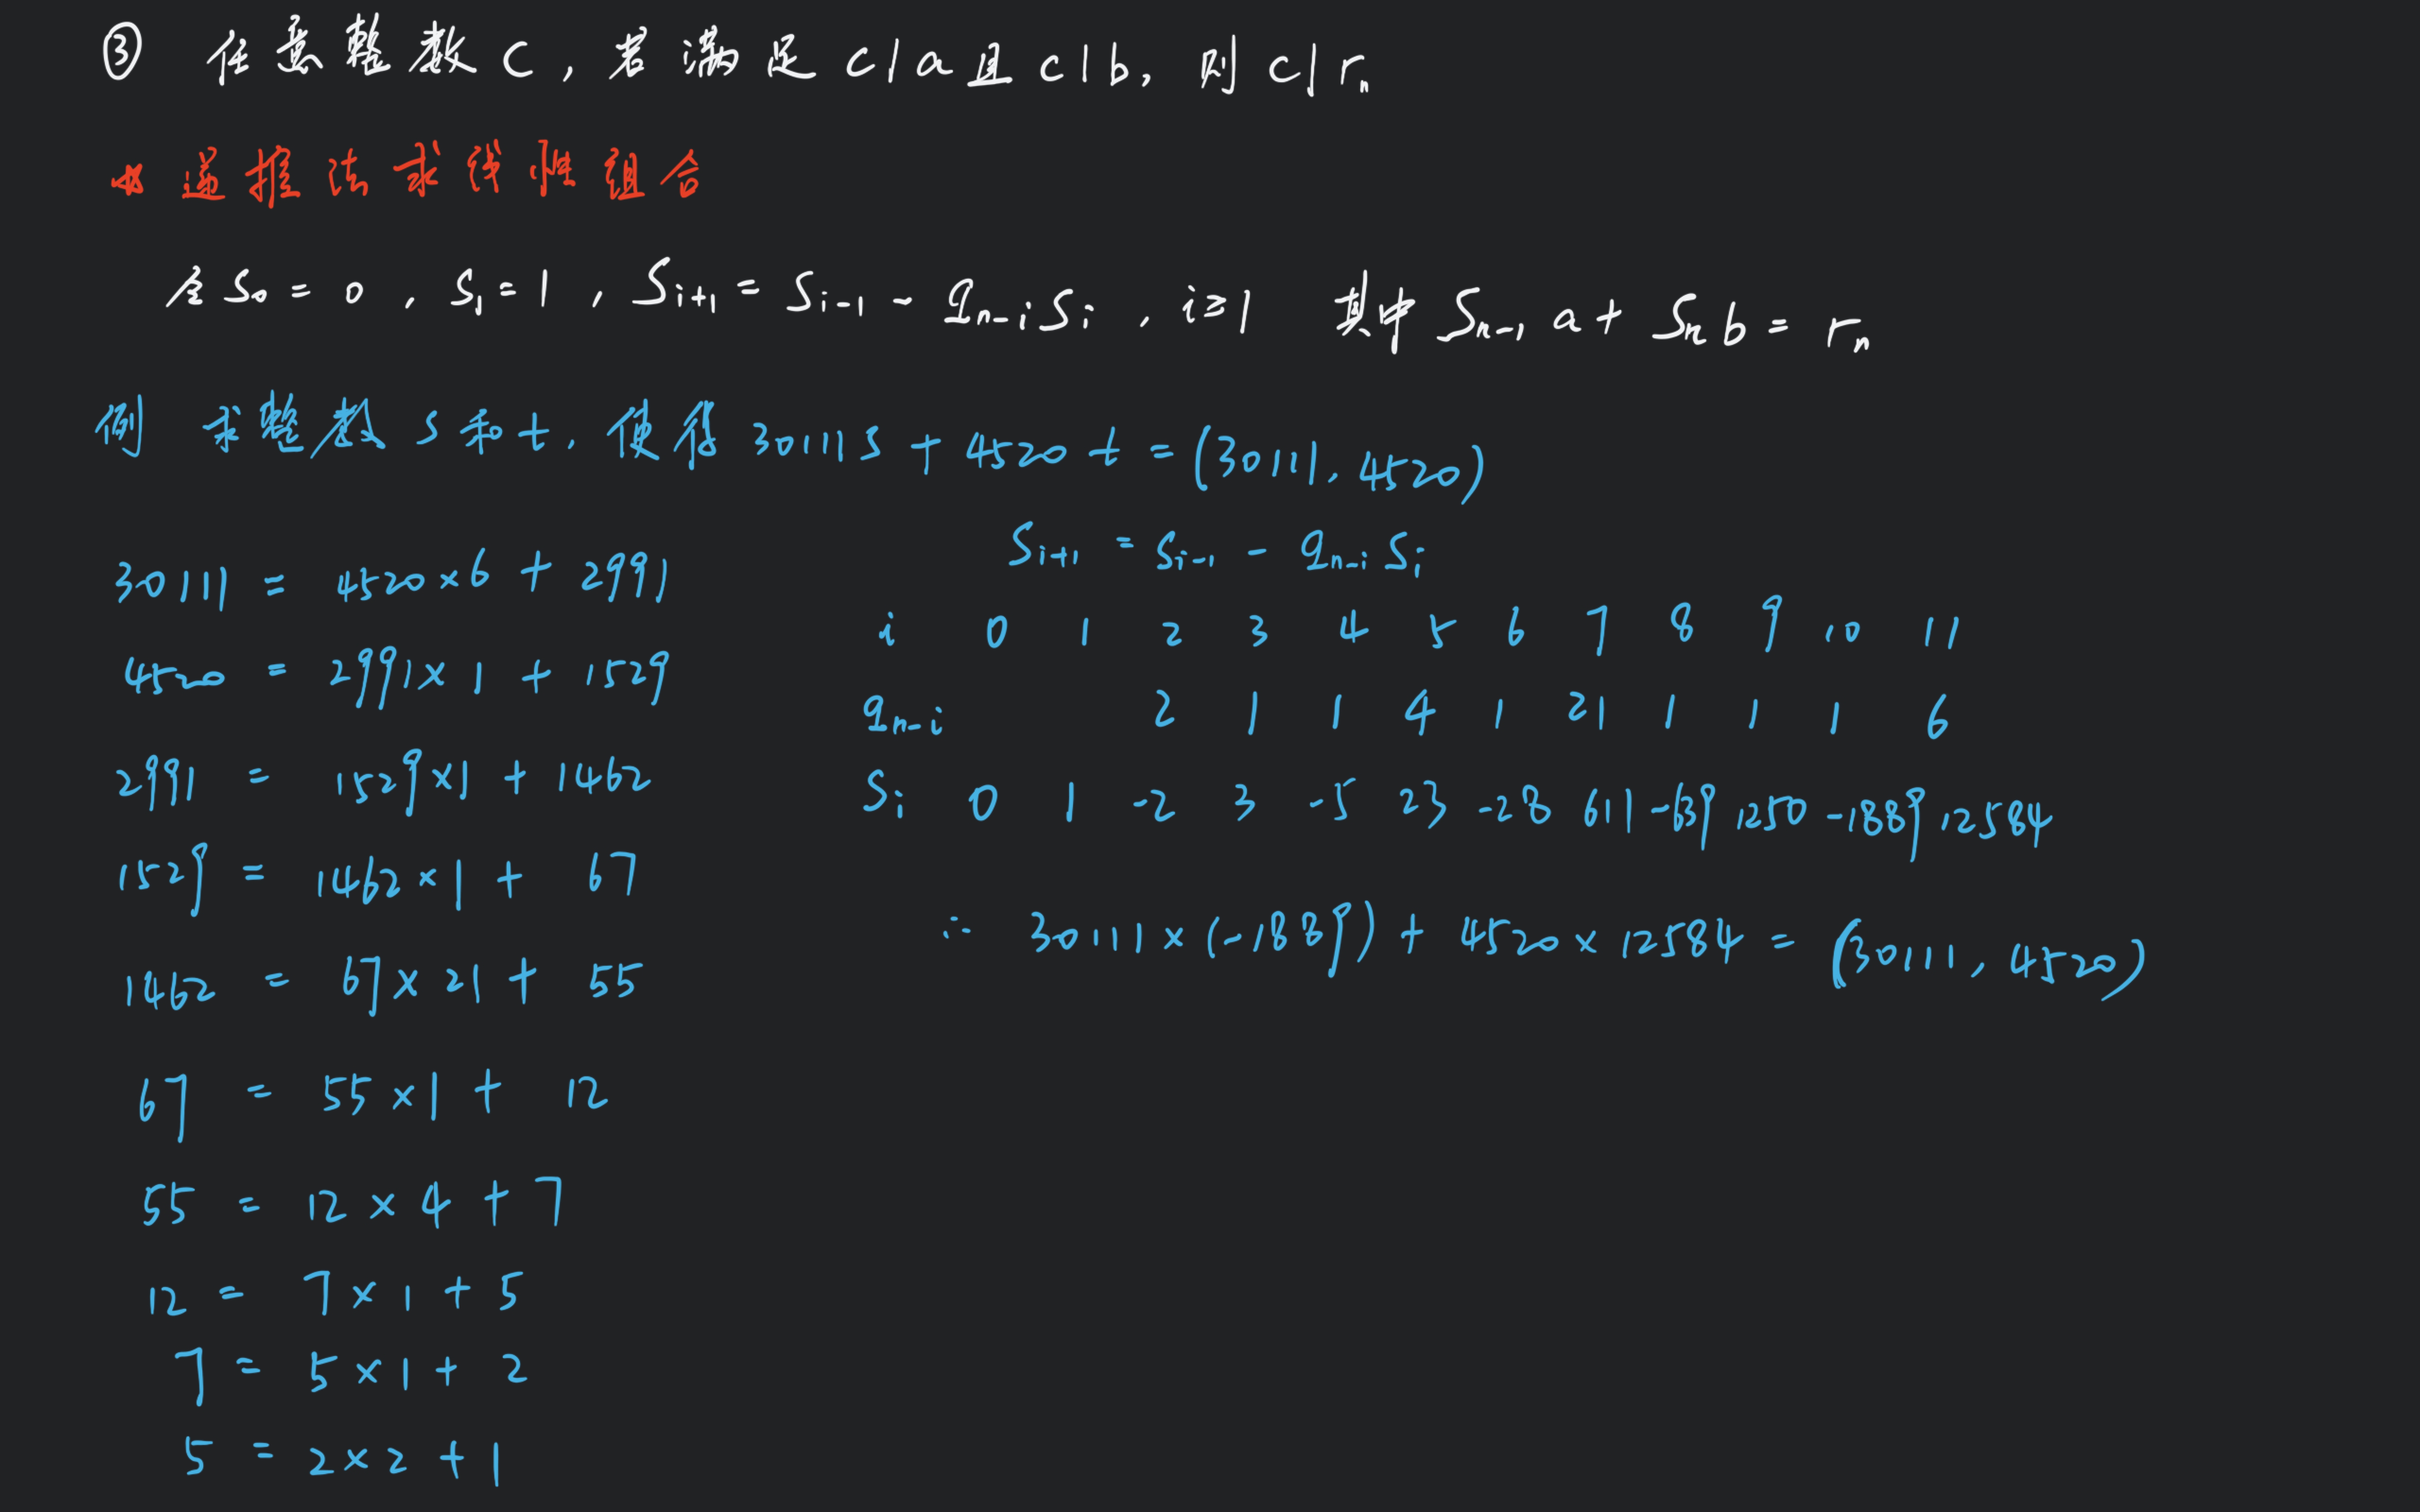 ③ 任意整数 c, 若满足 c|a 且 c|b, 则 c|rₙ
递推法求线性组合
令 S₀ = 0, S₁ = 1, Sᵢ₊₁ = Sᵢ₋₁ - qₙ₋ᵢSᵢ, i≥1 其中 Sₙ₋₁a + Sₙb = rₙ
例 求整数 s 和 t, 使得 30111s + 4520t = (30111, 4520)
30111 = 4520×6 + 2991
4520 = 2991×1 + 1529
2991 = 1529×1 + 1462
1529 = 1462×1 + 67
1462 = 67×21 + 55
67 = 55×1 + 12
55 = 12×4 + 7
12 = 7×1 + 5
7 = 5×1 + 2
5 = 2×2 + 1
Sᵢ₊₁ = Sᵢ₋₁ - qₙ₋ᵢSᵢ
i 0 1 2 3 4 5 6 7 8 9 10 11
qₙ₋ᵢ 2 1 1 4 1 21 1 1 1 6
Sᵢ 0 1 -2 3 -5 23 -28 611 -639 1250 -1889 12584
∴ 30111×(-1889) + 4520×12584 = (30111, 4520)